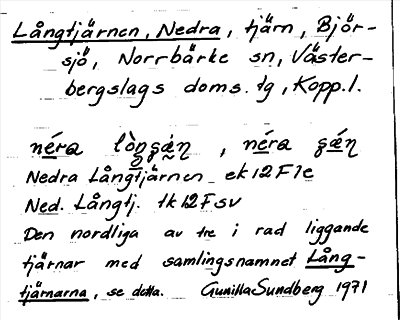 Långtjärnen, Nedra, tjärn, Björ-
sjö, Norrbärke sn, Väster-
bergslags doms. tg, Kopp. l.
néra lòŋgǽŋ, néra gǽŋ
Nedra Långtjärnen ek 12 F 1e
Ned. Långtj. tk 12 F sv
Den nordliga av tre i rad liggande
tjärnar med samlingsnamnet Lång-
tjärnarna, se detta. Gunilla Sundberg 1971